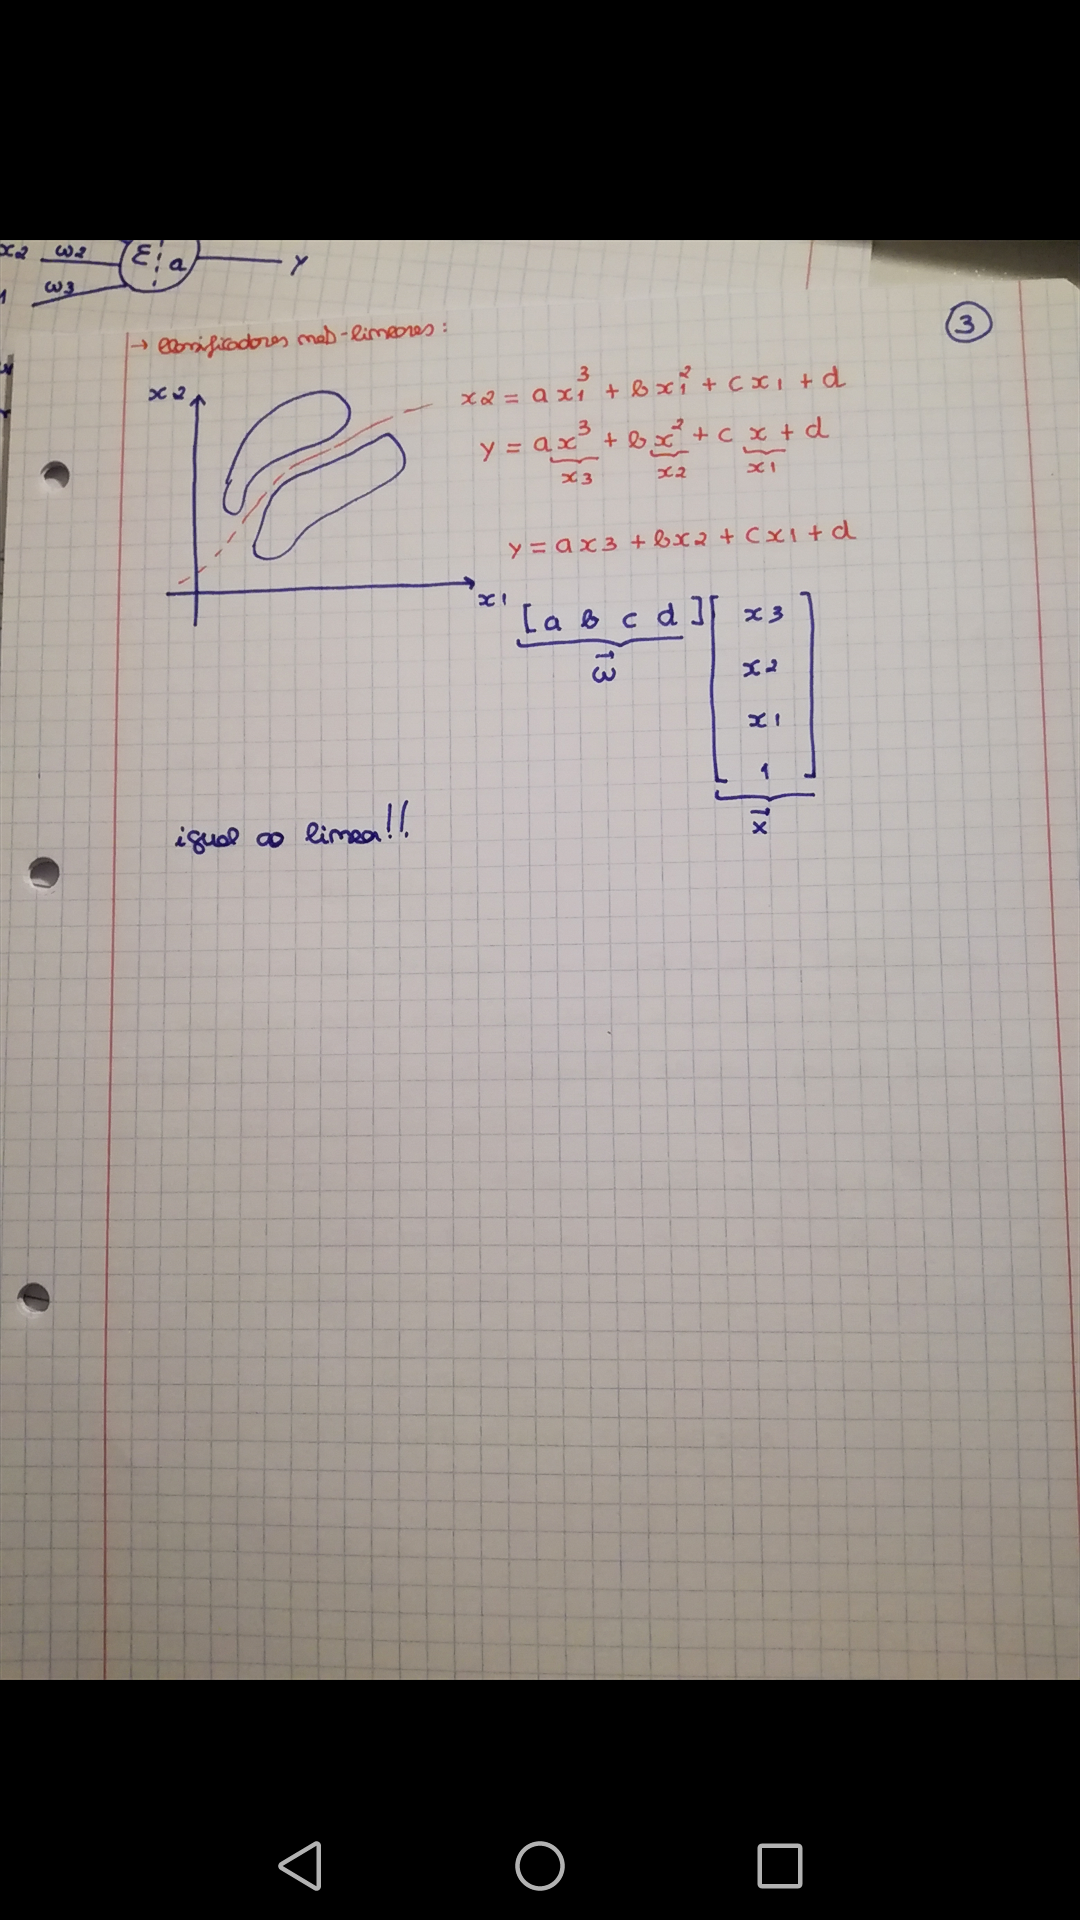 x2 w2 Σ a y
1 w3
→ classificadores não-lineares:
3
x2
x2 = ax₁³ + bx₁² + cx₁ + d
y = ax³ + bx² + cx + d
x3 x2 x1
y = ax3 + bx2 + cx1 + d
x1
[a b c d] [x3
x2
x1
1]
w⃗
x⃗
igual ao linea!!